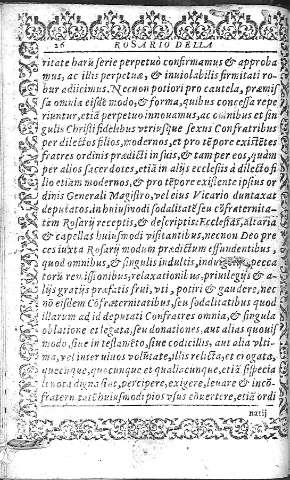 26 ROSARIO DELLA
ritate harū serie perpetuò confirmamus & approba
mus, ac illis perpetuæ, & inuiolabilis firmitati ro-
bur adiicimus. Necnon potiori pro cautela, præmis
sa omnia eisdē modo, & forma, quibus concessa repe
riuntur, etiā perpetuo innouamus, ac omnibus et sin
gulis Christi fidelibus vtriusque sexus Confratribus
per dilectos filios, modernos, et pro tēpore existētes
fratres ordinis prædicti in suis, & tam per eos, quàm
per alios sacerdotes, etiā in alijs ecclesijs à dilecto fi
lio etiàm modernos, & pro tēpore existente ipsius or
dinis Generali Magistro, vel eius Vicario duntaxat
deputatos. in huiusmodi sodalitatē seu cōfraternita-
tem Rosarij receptis, & descriptis: Ecclesias, altaria
& capellas huiusmodi visitantibus, necnon Deo pre
ces iuxta Rosarij modum prædictum effundentibus,
quod omnibus, & singulis indultis, indulgentijs, pecca
torū remissionibus, relaxationibus, priuilegijs & a-
lijs gratijs præfatis frui, vti, potiri & gaudere, nec
nō eisdem Cōfraternitatibus, seu sodalitatibus quod
illarum ad id deputati Confratres omnia, & singula
oblatione et legata, seu donationes, aut alias quouis
modo, siue in testamēto, siue codicillis, aut alia vlti-
ma, vel inter viuos volūtate, illis relicta, et erogata,
quæcunque, quocunque et qualiacunque, etiā si specia
li nota digna sint, percipere, exigere, leuare & in cō-
fraternitatū huiusmodi pios vsus cōuertere, etiā ordi
narij